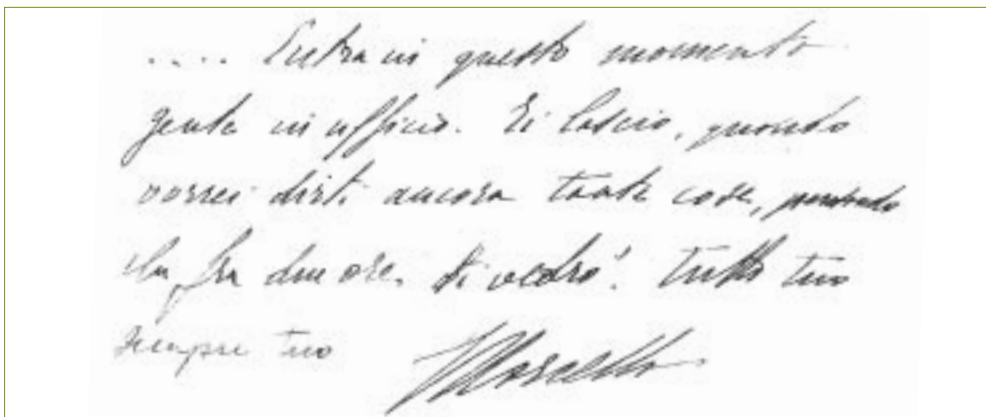 .... Entra in questo momento
gente in ufficio. Ti lascio, quando
vorrei dirti ancora tante cose, pensando
che fra due ore, ti vedrò! Tutto tuo
sempre tuo Marcello